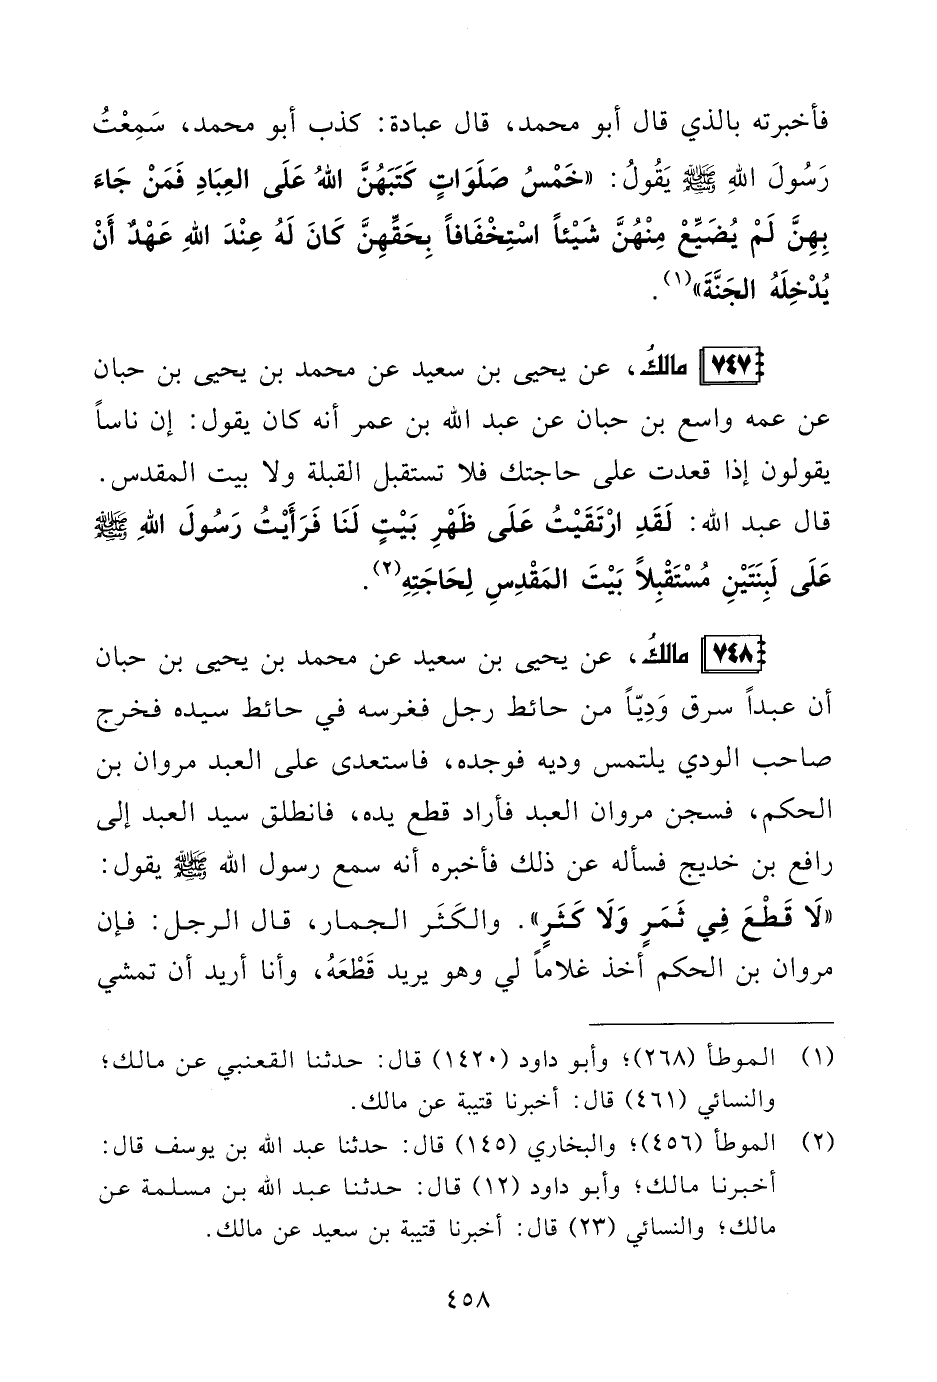 فأخبرته بالذي قال أبو محمد، قال عبادة: كذب أبو محمد، سَمِعْتُ
رَسُولَ اللهِ ﷺ يَقُولُ: «خَمْسُ صَلَوَاتٍ كَتَبَهُنَّ اللهُ عَلَى العِبَادِ فَمَنْ جَاءَ
بِهِنَّ لَمْ يُضَيِّعْ مِنْهُنَّ شَيْئاً اسْتِخْفَافاً بِحَقِّهِنَّ كَانَ لَهُ عِنْدَ اللهِ عَهْدٌ أَنْ
يُدْخِلَهُ الجَنَّةَ»(١).
٧٤٧ مالكُ، عن يحيى بن سعيد عن محمد بن يحيى بن حبان
عن عمه واسع بن حبان عن عبد الله بن عمر أنه كان يقول: إن ناساً
يقولون إذا قعدت على حاجتك فلا تستقبل القبلة ولا بيت المقدس.
قال عبد الله: لَقَدِ ارْتَقَيْتُ عَلَى ظَهْرِ بَيْتٍ لَنَا فَرَأَيْتُ رَسُولَ اللهِ ﷺ
عَلَى لَبِنَتَيْنِ مُسْتَقْبِلاً بَيْتَ المَقْدِسِ لِحَاجَتِهِ(٢).
٧٤٨ مالكُ، عن يحيى بن سعيد عن محمد بن يحيى بن حبان
أن عبداً سرق وَدِيّاً من حائط رجل فغرسه في حائط سيده فخرج
صاحب الودي يلتمس وديه فوجده، فاستعدى على العبد مروان بن
الحكم، فسجن مروان العبد فأراد قطع يده، فانطلق سيد العبد إلى
رافع بن خديج فسأله عن ذلك فأخبره أنه سمع رسول الله ﷺ يقول:
«لَا قَطْعَ فِي ثَمَرٍ وَلَا كَثَرٍ». والكَثَر الجمار، قال الرجل: فإن
مروان بن الحكم أخذ غلاماً لي وهو يريد قَطْعَهُ، وأنا أريد أن تمشي
(١) الموطأ (٢٦٨)؛ وأبو داود (١٤٢٠) قال: حدثنا القعنبي عن مالك؛
والنسائي (٤٦١) قال: أخبرنا قتيبة عن مالك.
(٢) الموطأ (٤٥٦)؛ والبخاري (١٤٥) قال: حدثنا عبد الله بن يوسف قال:
أخبرنا مالك؛ وأبو داود (١٢) قال: حدثنا عبد الله بن مسلمة عن
مالك؛ والنسائي (٢٣) قال: أخبرنا قتيبة بن سعيد عن مالك.
٤٥٨